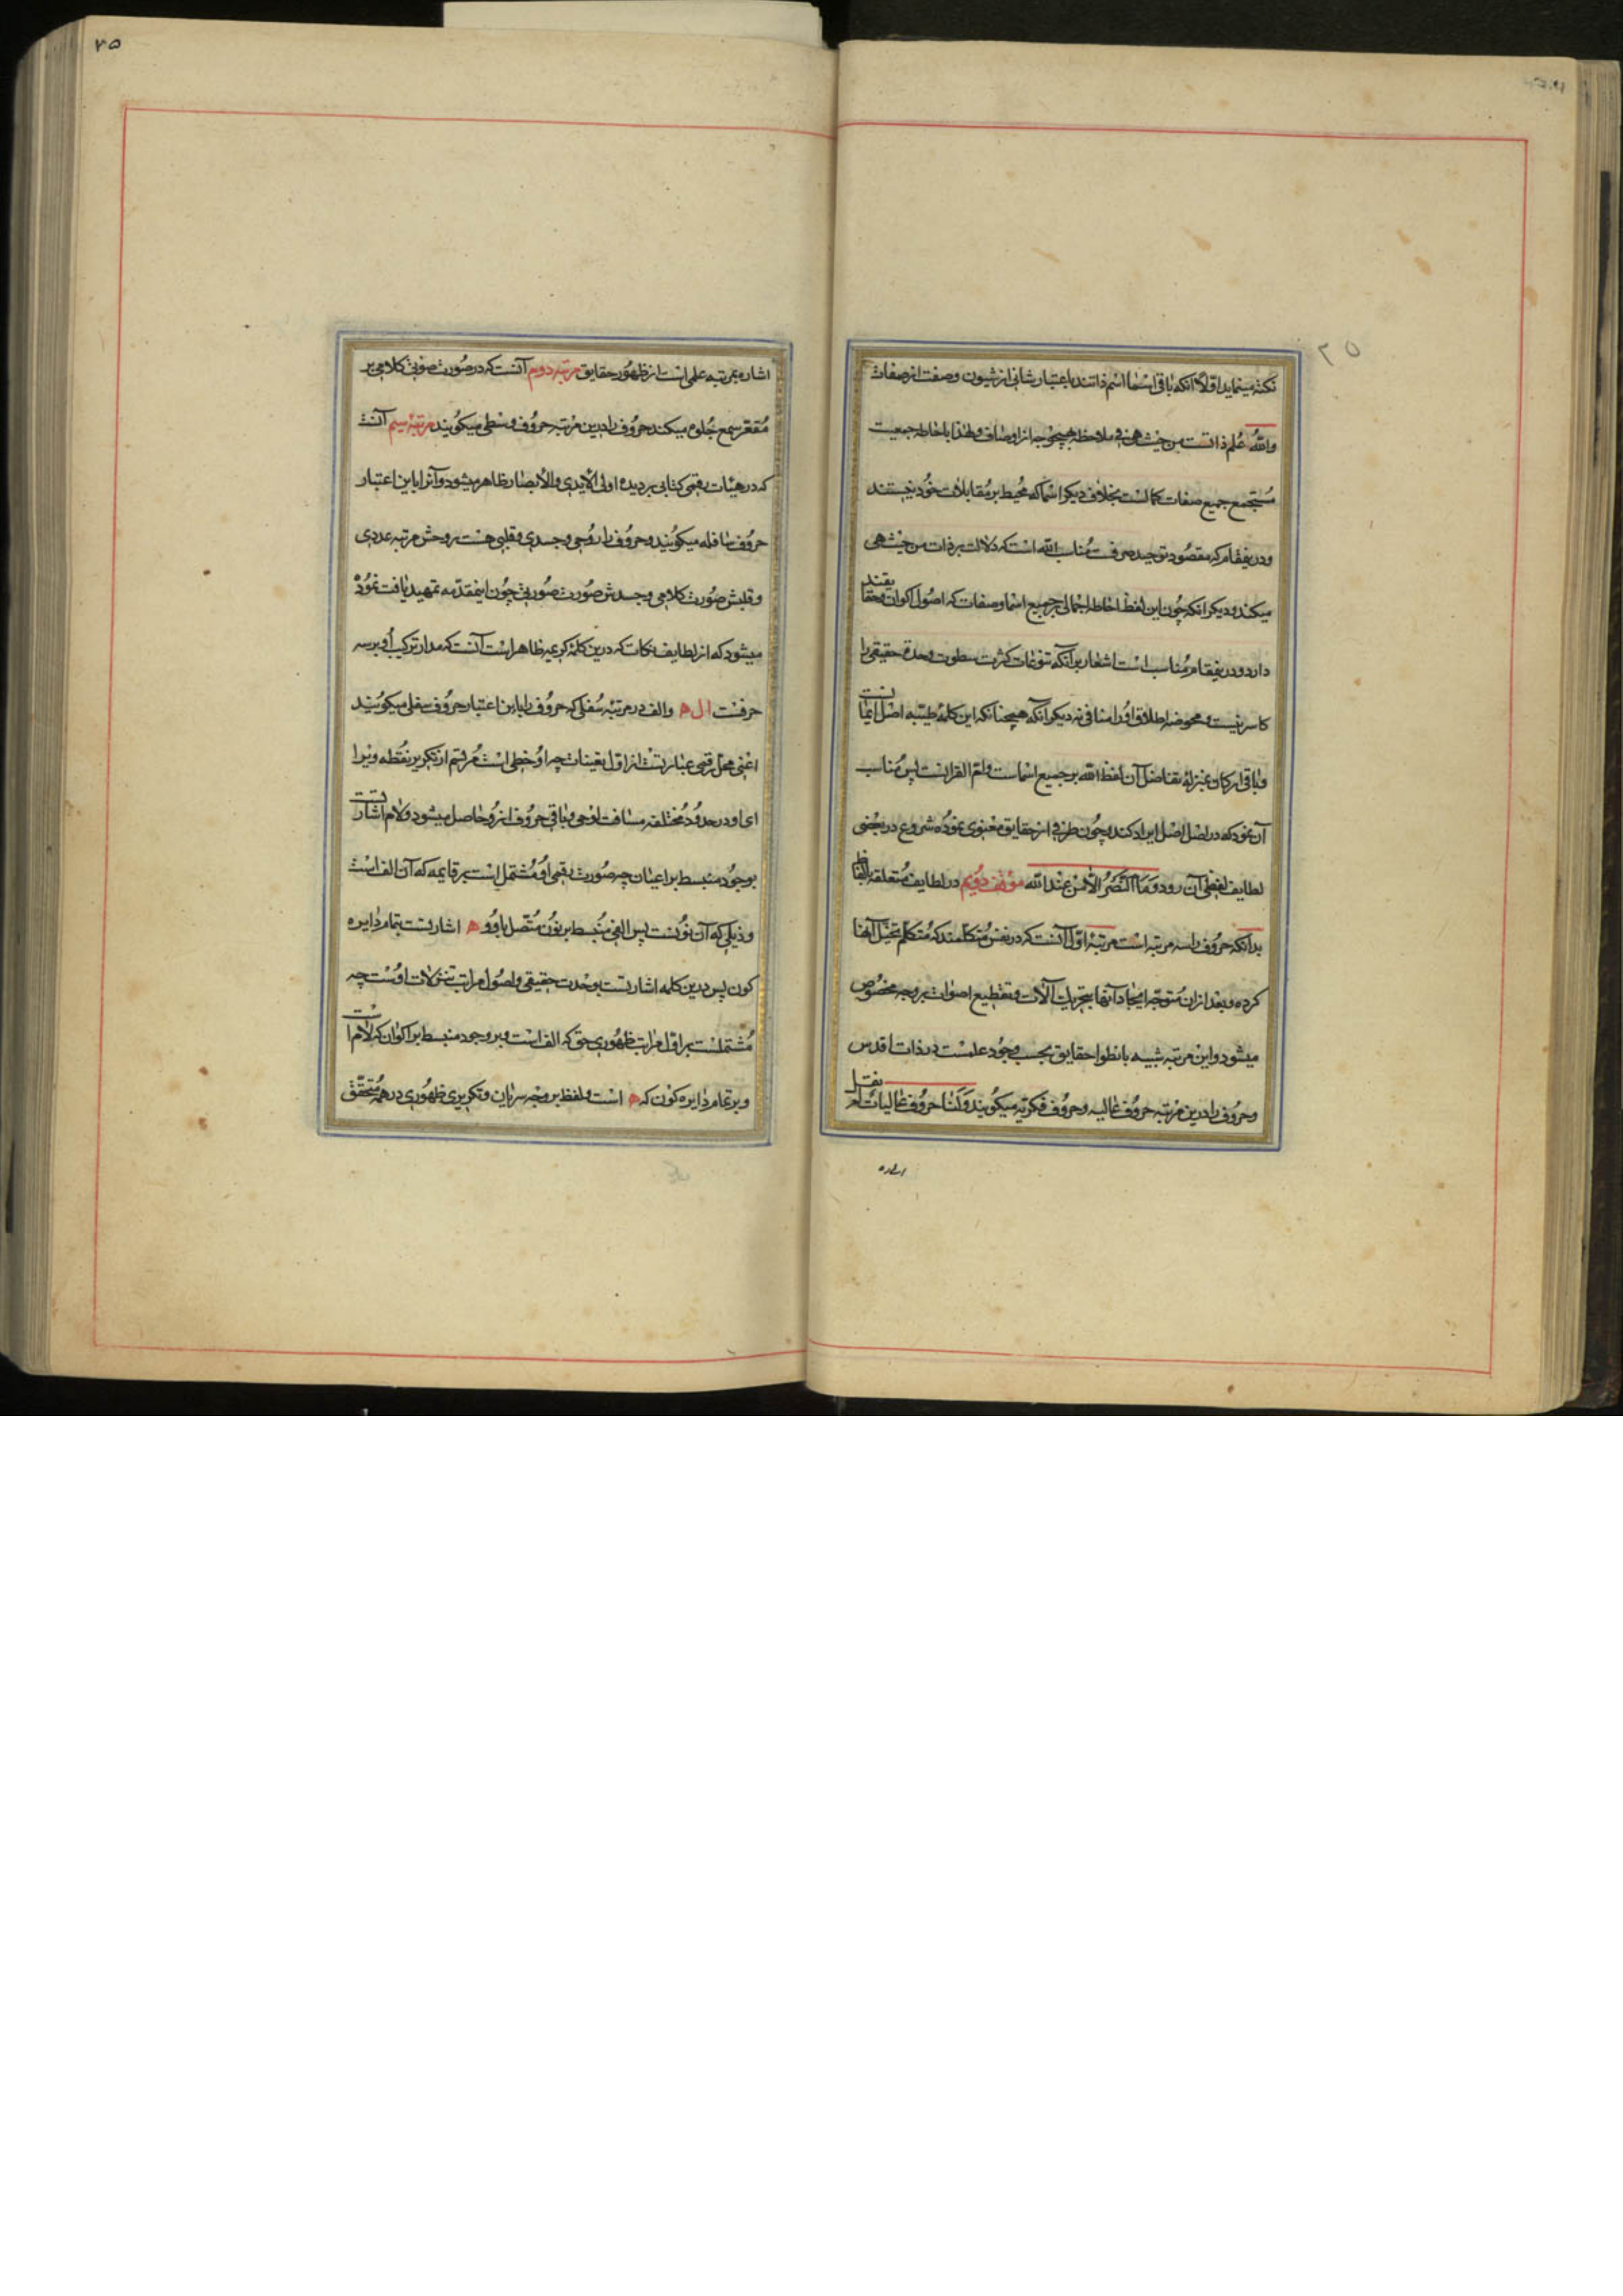 ۲۵
نکته مینماید اولا آنکه باقی اسما اسم ذاتند باعتبار شانی از شیون و صفت از صفات
والله علم ذاتست من حیث هی فی ملاحظه هیچ وجه از اوصاف ولهذا باحاطه جمعیت
مستجمع جمیع صفات کمالست بخلاف دیگر اسما که محیط بر مقابلات خود نیستند
ودرینمقام که مقصود توحید صرفست مناسب الله است که دلالت بر ذات من حیث هی
میکند و دیگر آنکه چون این لفظ احاطه اجمالی بر جمیع اسما و صفات که اصول اکوان و حقایقند
دارد و درینمقام مناسب است اشعار بر آنکه تنوعات کثرت سطوت وحدة حقیقی را
کاسر نیست و محوضه اطلاق او را منافی نه دیگر آنکه همچنانکه این کلمه طیبه اصل ایمانست
وباقی ارکان بمنزله تفاضل آن لفظ الله بر جمیع اسماست و ام القرانست پس مناسب
آن نمود که در اصل اصل ایراد کند و چون طرفی از حقایق معنوی نموده شروع در بعضی
لطایف لفظی آن رود وما النصر الا من عند الله موقف دویم در لطایف متعلقه بالفاظ
بدانکه حروف را سه مرتبه است مرتبه اول آنست که در نفس متکلمند که متکلم تخیل آنها
کرده و بعد ازان متوجه ایجاد آنها بتحریک آلات و تقطیع اصوات بر وجه مخصوص
میشود و این مرتبه شبیه بانطوا حقایق بحسب وجود علمست در ذات اقدس
وحروف را درین مرتبه حروف عالیه و حروف فکریه میگویند وکنا حروف عالیات لم نقل
اشاره
۲۵
اشاره بمرتبه علمی است از ظهور حقایق مرتبه دوم آنست که در صورت صوتی کلامی بر
مقعر سمع جلوه میکند حروف را درین مرتبه حروف وسطی میگویند مرتبه سیم آنست
که در هیئات رقمی کتابی بر دیده اولی الایدی والابصار ظاهر میشود و آنرا باین اعتبار
حروف سافله میگویند و حروف را روحی و جسدی و قلبی هست روحش مرتبه عددی
وقلبش صورت کلامی وجسدش صورت صورتی چون اینمقدمه تمهید یافت نموده
میشود که از لطایف نکات که درین کلمه کریمه ظاهر است آنست که مدار ترکیب او بر سه
حرفست ا ل ه والف در مرتبه سفلی که حروف را باین اعتبار حروف سفلی میگویند
اعنی محل رقمی عبارتست از اول تعینات چه او خطی است مرقم از تکریر نقطه ویرا
ای او در حدود مختلفه مسافت لوحی و باقی حروف از و حاصل میشود ولام اشارتست
بوجود منبسط بر اعیان چه صورت رقمی او مشتمل است بر قایمه که آن الف است
وذیلی که آن نونست پس الفی منبسط بر نون متصل باو و ه اشارتست بتمام دایره
کون پس درین کلمه اشارتست بوحدت حقیقی و اصول مراتب تنزلات اوست چه
مشتملست بر اول مراتب ظهوری حق که الف است و بر وجود منبسط بر اکوان که لام است
وبر تمام دایره کون که ه است و لفظ بر وجه سریان و تکریری ظهوری در همه متحقق